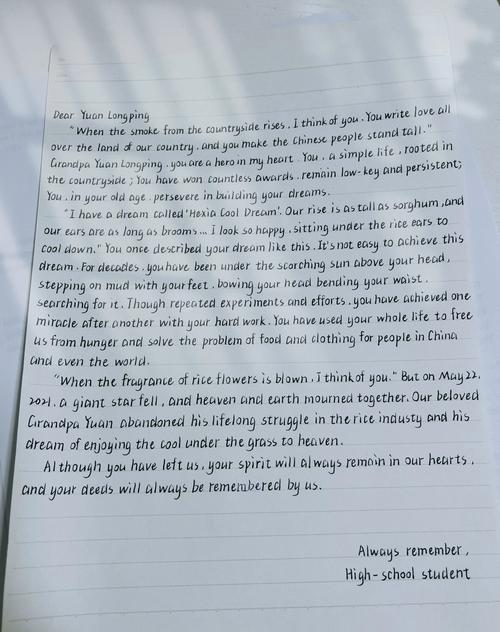 Dear Yuan Longping
"When the smoke from the countryside rises, I think of you. You write love all
over the land of our country, and you make the Chinese people stand tall."
Grandpa Yuan Longping, you are a hero in my heart. You, a simple life, rooted in
the countryside; You have won countless awards, remain low-key and persistent;
You, in your old age, persevere in building your dreams.
"I have a dream called 'Hexia Cool Dream'. Our rise is as tall as sorghum, and
our ears are as long as brooms... I look so happy, sitting under the rice ears to
cool down." You once described your dream like this. It's not easy to achieve this
dream. For decades, you have been under the scorching sun above your head,
stepping on mud with your feet, bowing your head bending your waist,
searching for it. Though repeated experiments and efforts, you have achieved one
miracle after another with your hard work. You have used your whole life to free
us from hunger and solve the problem of food and clothing for people in China
and even the world.
"When the fragrance of rice flowers is blown, I think of you." But on May 22,
2021, a giant star fell, and heaven and earth mourned together. Our beloved
Grandpa Yuan abandoned his lifelong struggle in the rice industy and his
dream of enjoying the cool under the grass to heaven.
Although you have left us, your spirit will always remain in our hearts,
and your deeds will always be remembered by us.
Always remember,
High-school student